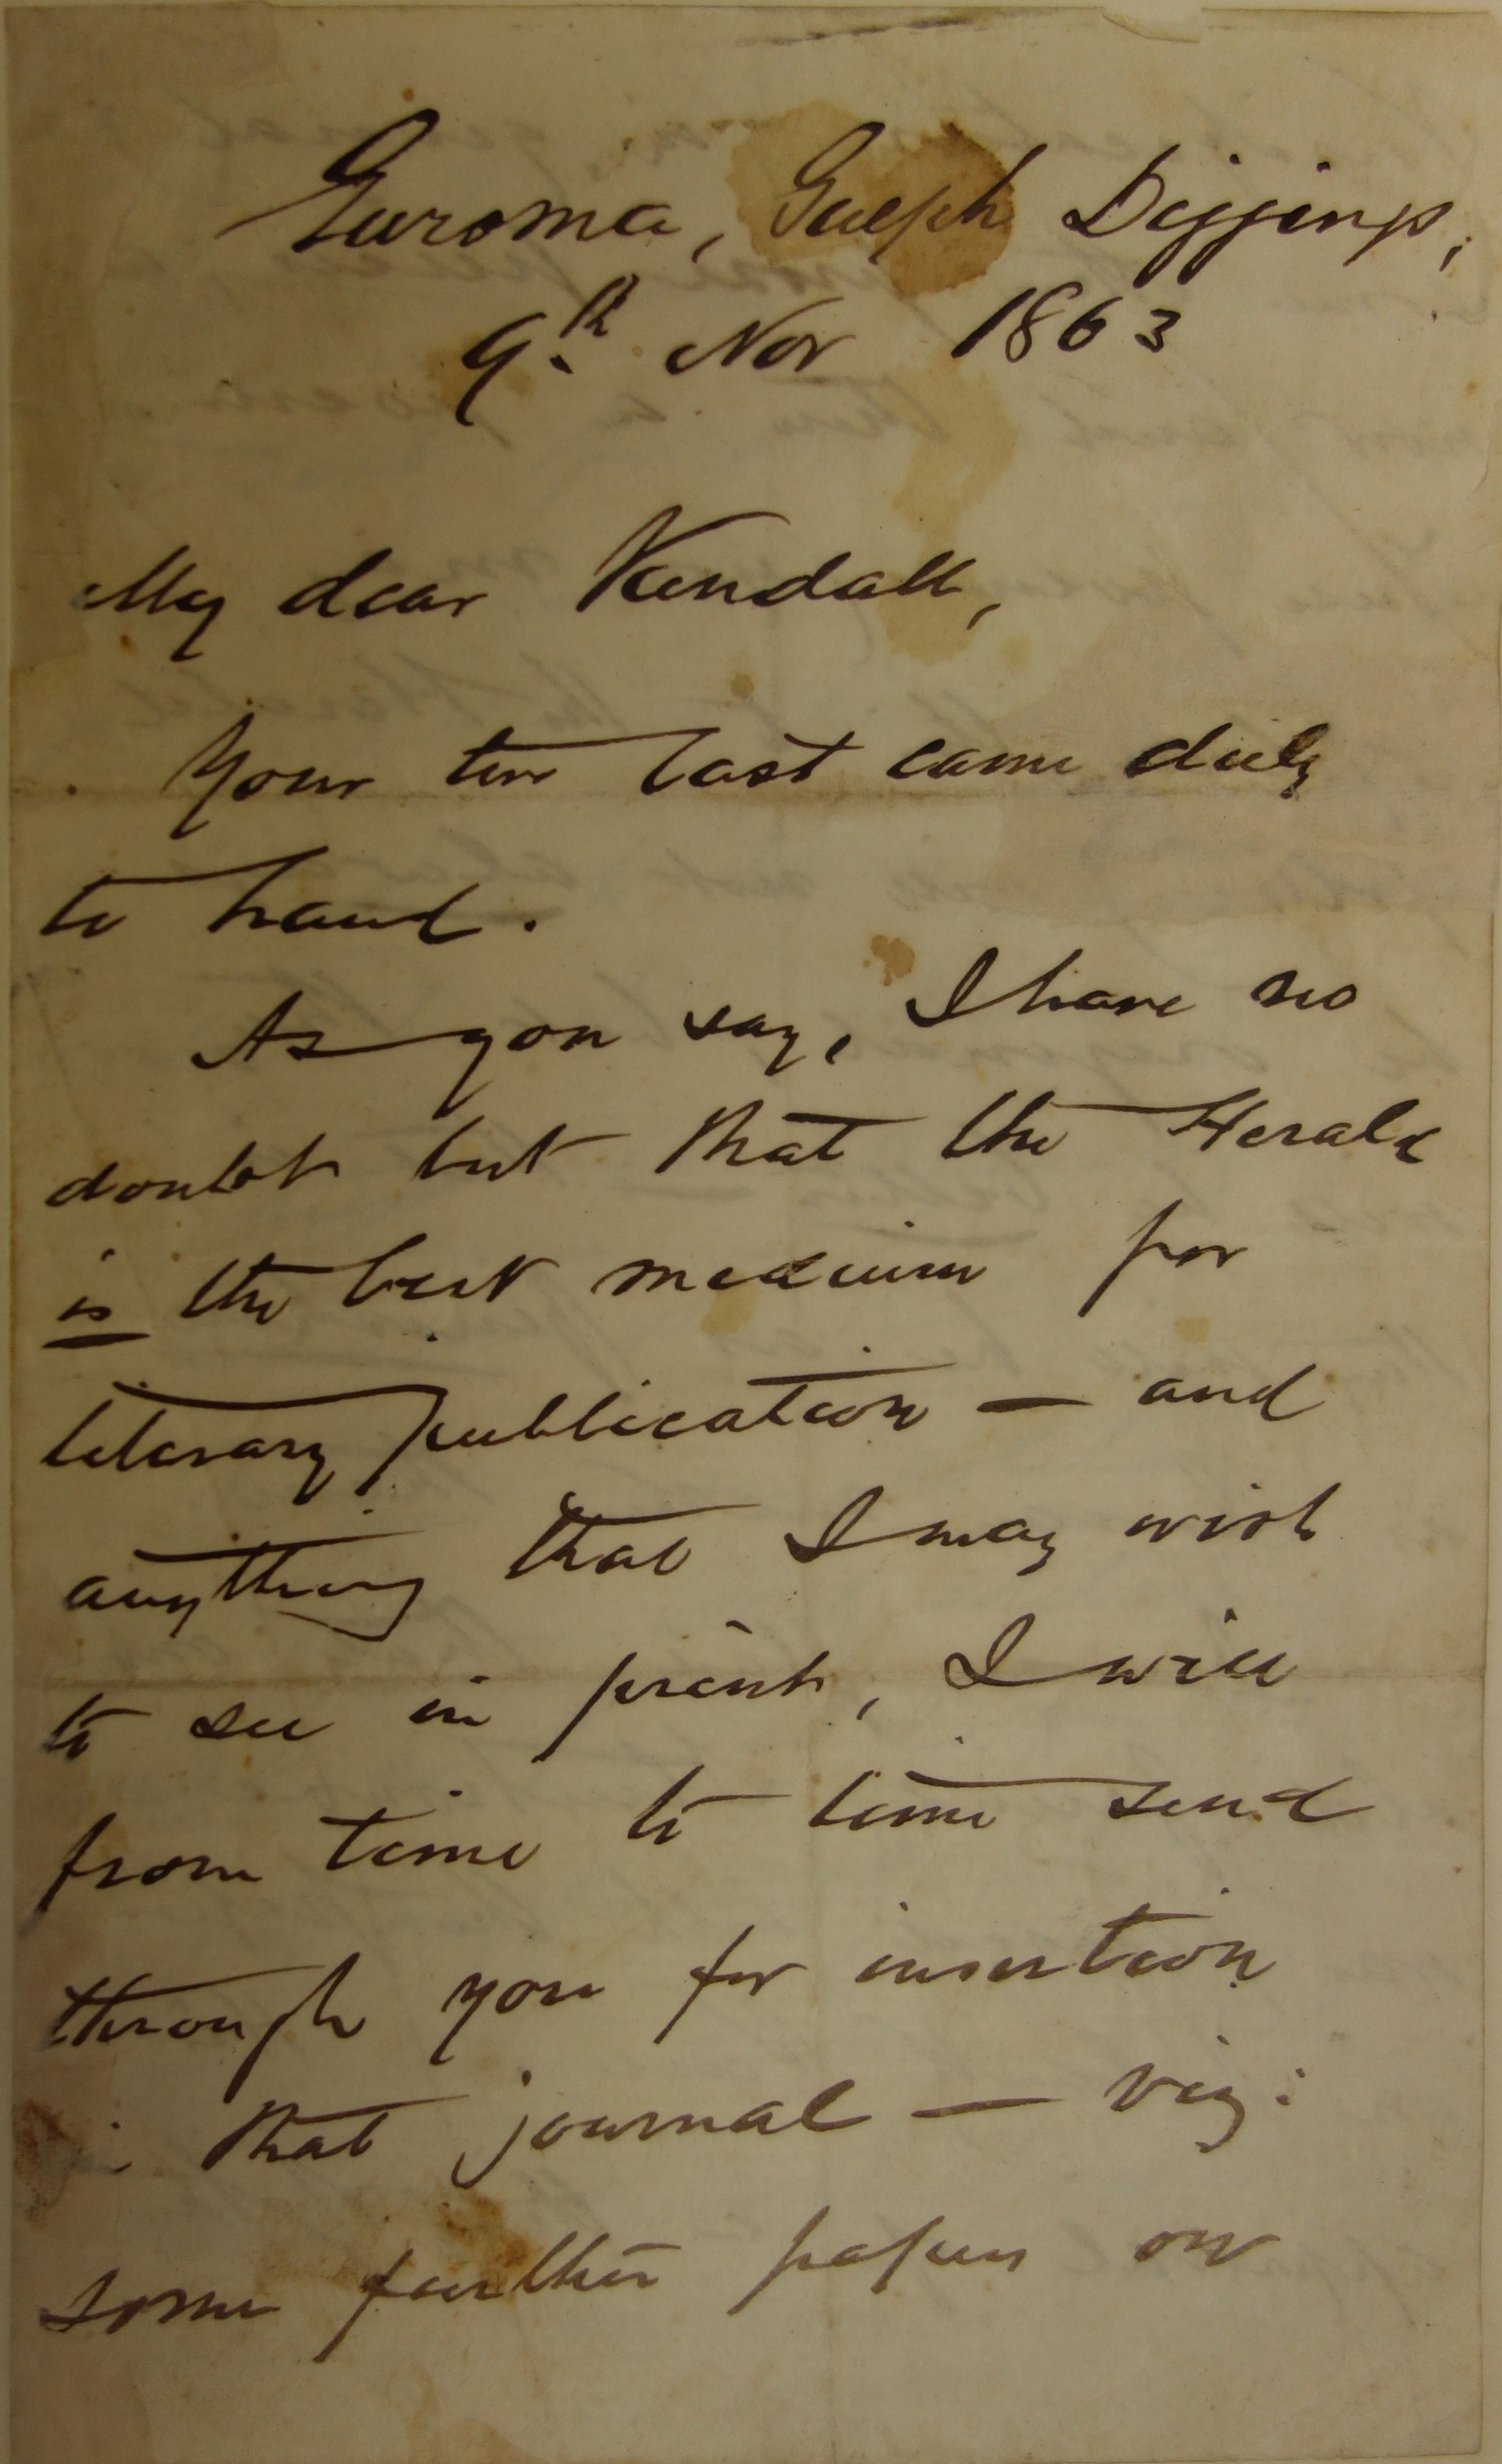 Euroma, Guelph Diggings,
9th Nov 1863
My dear Kendall,
Your two last came duly
to hand.
As you say, I have no
doubt but that the Herald
is the best medium for
literary publication — and
anything that I may wish
to see in print, I will
from time to time send
through you for insertion
in that journal — viz:
some further papers on